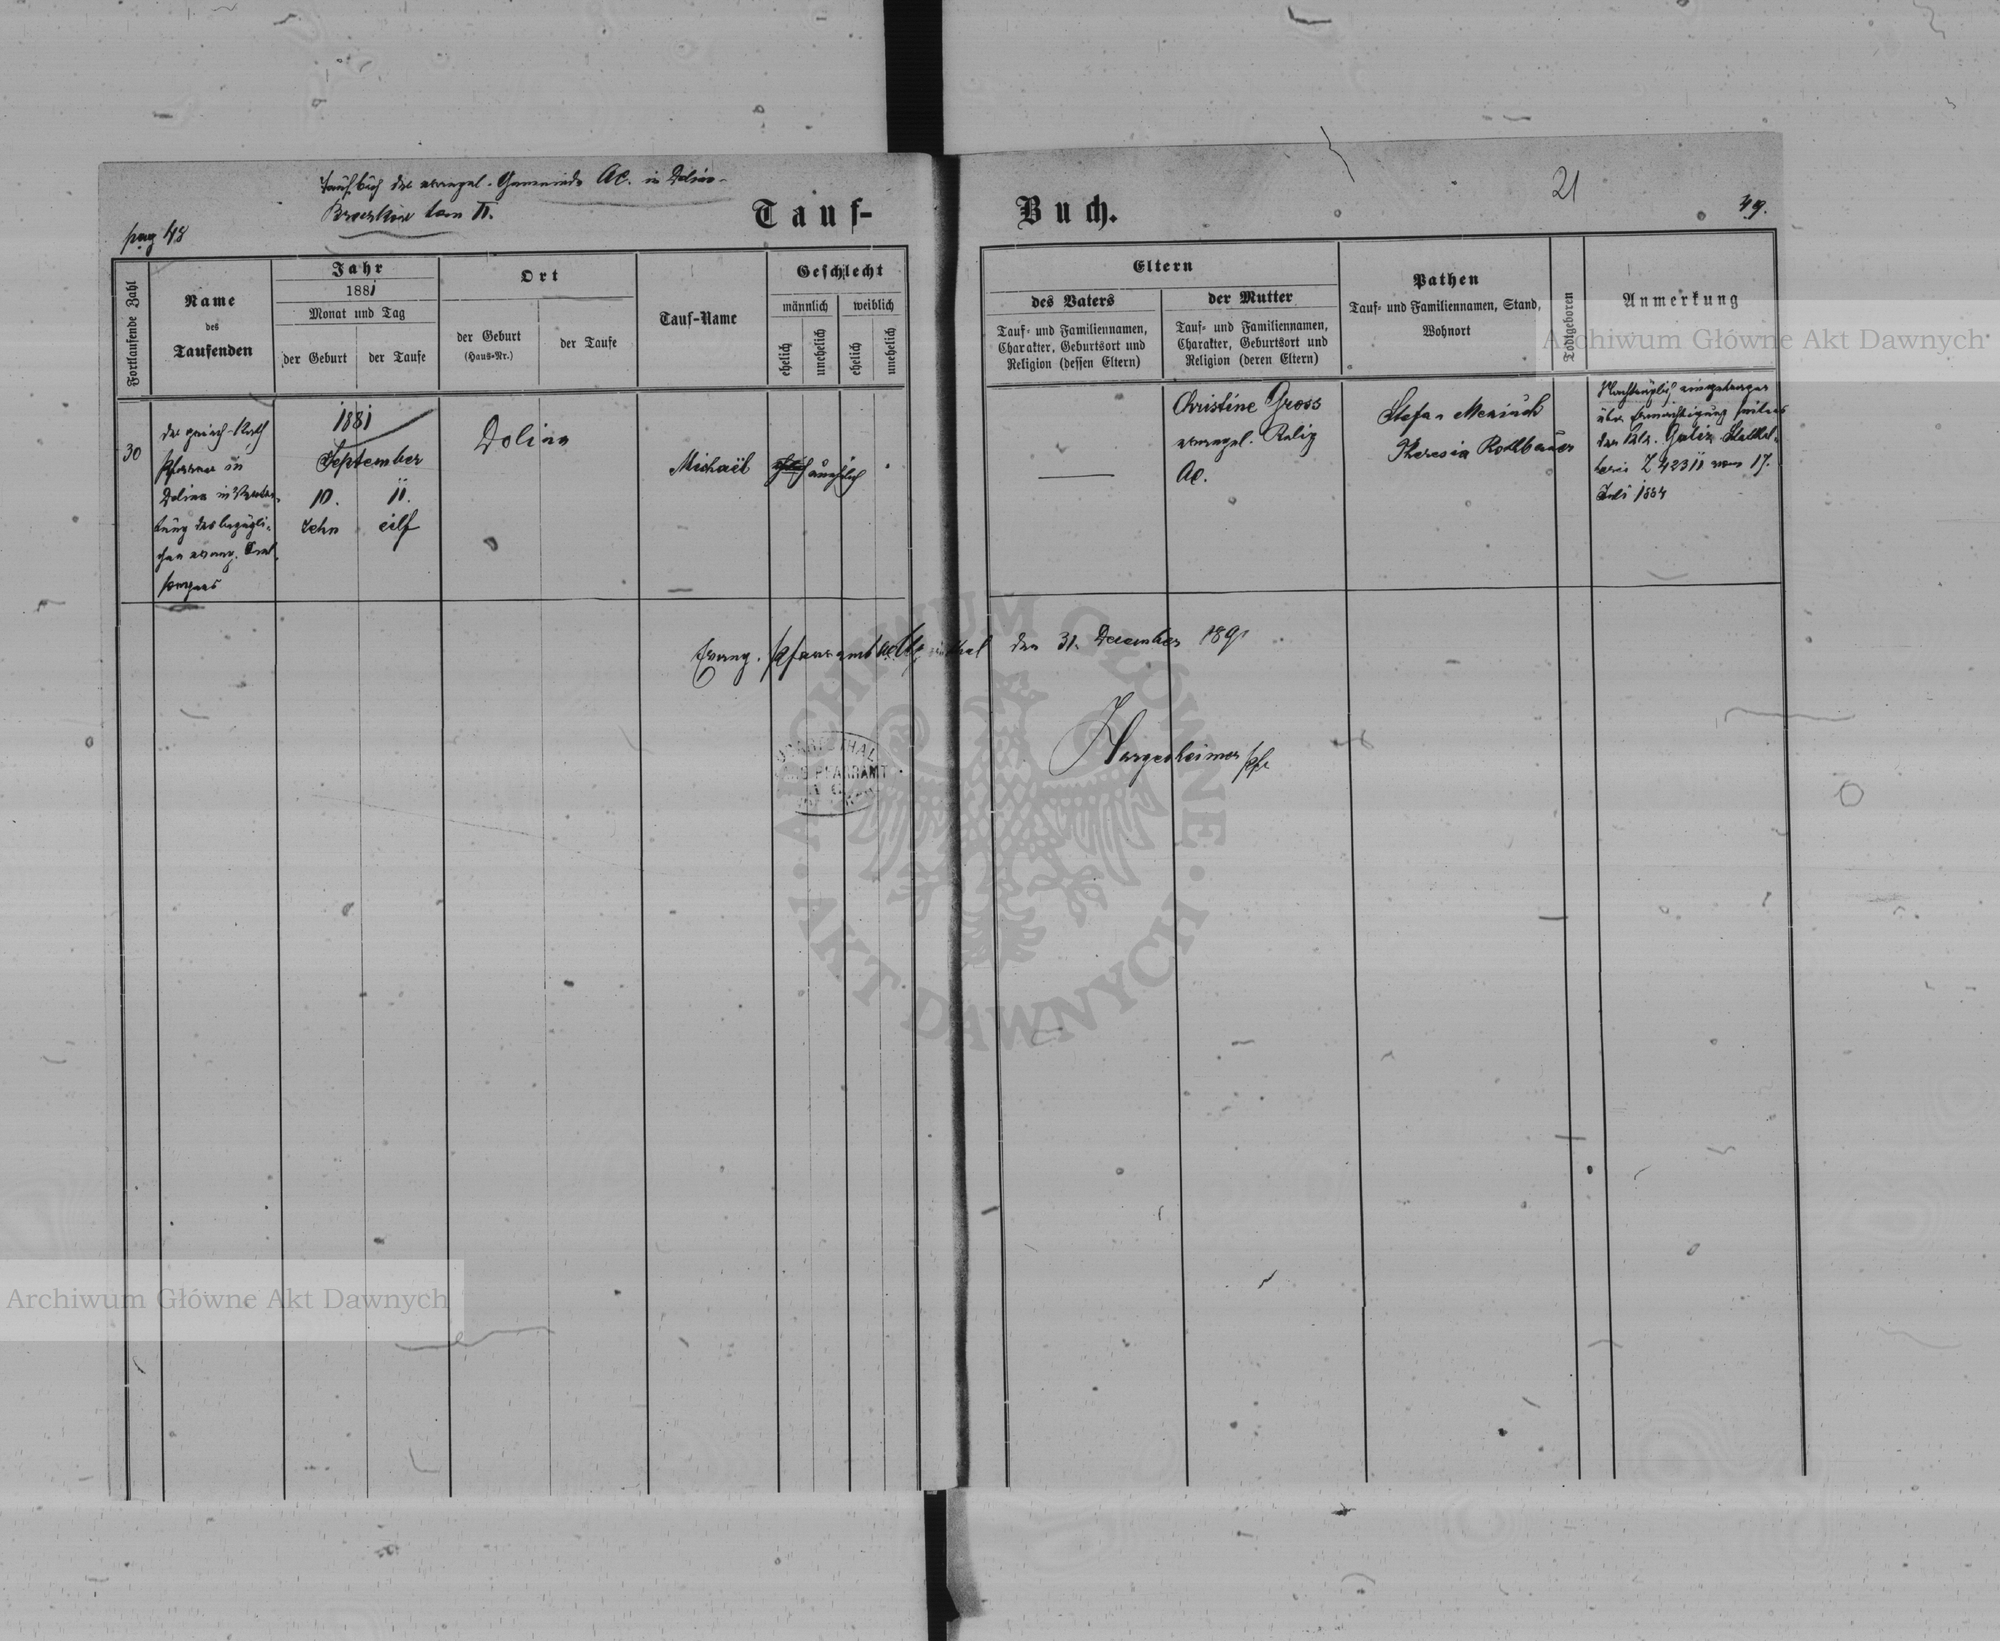 Taufbuch der evangel. Gemeinde AC. in Dolina-
tom II.
pag 48
Tauf-
Buch.
21
49.
Fortlaufende Zahl
Name
des
Taufenden
Jahr
1881
Monat und Tag
der Geburt
der Taufe
Ort
der Geburt
(Haus-Nr.)
der Taufe
Tauf-Name
Geschlecht
männlich
weiblich
ehelich
unehelich
ehelich
unehelich
Eltern
des Vaters
Tauf- und Familiennamen,
Charakter, Geburtsort und
Religion (dessen Eltern)
der Mutter
Tauf- und Familiennamen,
Charakter, Geburtsort und
Religion (deren Eltern)
Pathen
Tauf- und Familiennamen, Stand,
Wohnort
Todtgeboren
Anmerkung
30
der griech-Kath
Pfarrer in
Dolina in Vertre-
tung des bezügli-
chen evang. Seel-
sorgers
1881
September
10. 11.
zehn eilf
Dolina
Michaël
ehelich unehelich
Christine Gross
evangel. Relig
AC.
Stefan
Theresia
Nachträglich eingetragen
über Ermächtigung seitens
der Galiz. Statthal-
terei Z 42311 vom 17.
Juli 1884
Evang. Pfarramt den 31. December 1891
Hargesheimer Pfr
PFARRAMT
Archiwum Główne Akt Dawnych
Archiwum Główne Akt Dawnych
ARCHIWUM GŁÓWNE · AKT DAWNYCH ·